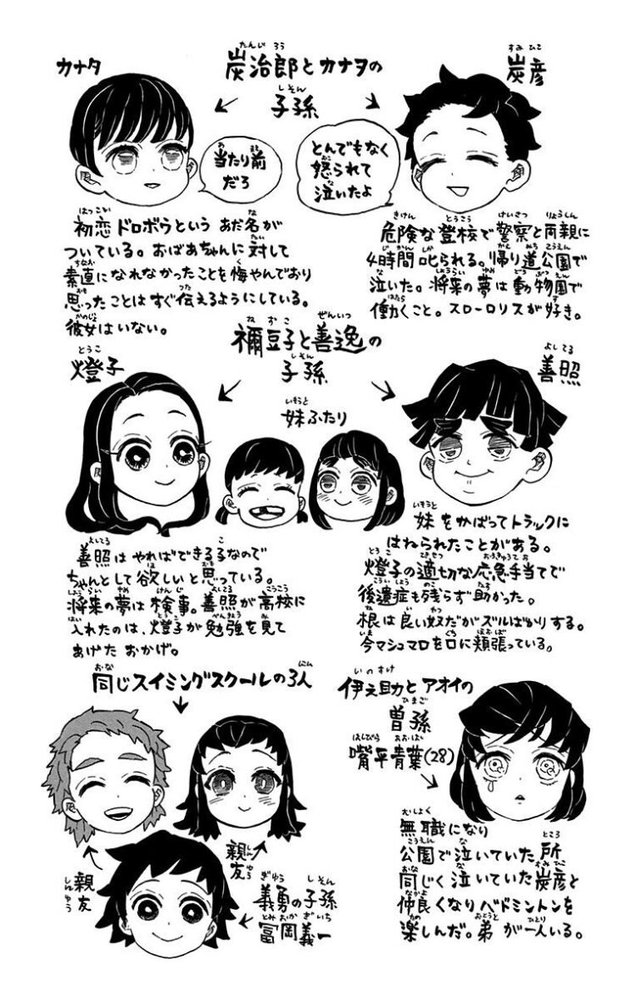 炭治郎とカナヲの
子孫
カナタ
当たり前
だろ
初恋ドロボウというあだ名が
ついている。おばあちゃんに対して
素直になれなかったことを悔やんでおり
思ったことはすぐ伝えるようにしている。
彼女はいない。
炭彦
とんでもなく
怒られて
泣いたよ
危険な登校で警察と両親に
4時間叱られる。帰り道公園で
泣いた。将来の夢は動物園で
働くこと。スローロリスが好き。
禰豆子と善逸の
子孫
燈子
妹ふたり
善照
善照はやればできる子なので
ちゃんとして欲しいと思っている。
将来の夢は検事。善照が高校に
入れたのは、燈子が勉強を見て
あげたおかげ。
妹をかばってトラックに
はねられたことがある。
燈子の適切な応急手当てで
後遺症も残らず助かった。
根は良い奴だがズルばかりする。
今マシュマロを口に頬張っている。
同じスイミングスクールの3人
親友
親友
義勇の子孫
冨岡義一
伊之助とアオイの
曽孫
嘴平青葉(28)
無職になり
公園で泣いていた所
同じく泣いていた炭彦と
仲良くなりバドミントンを
楽しんだ。弟が一人いる。